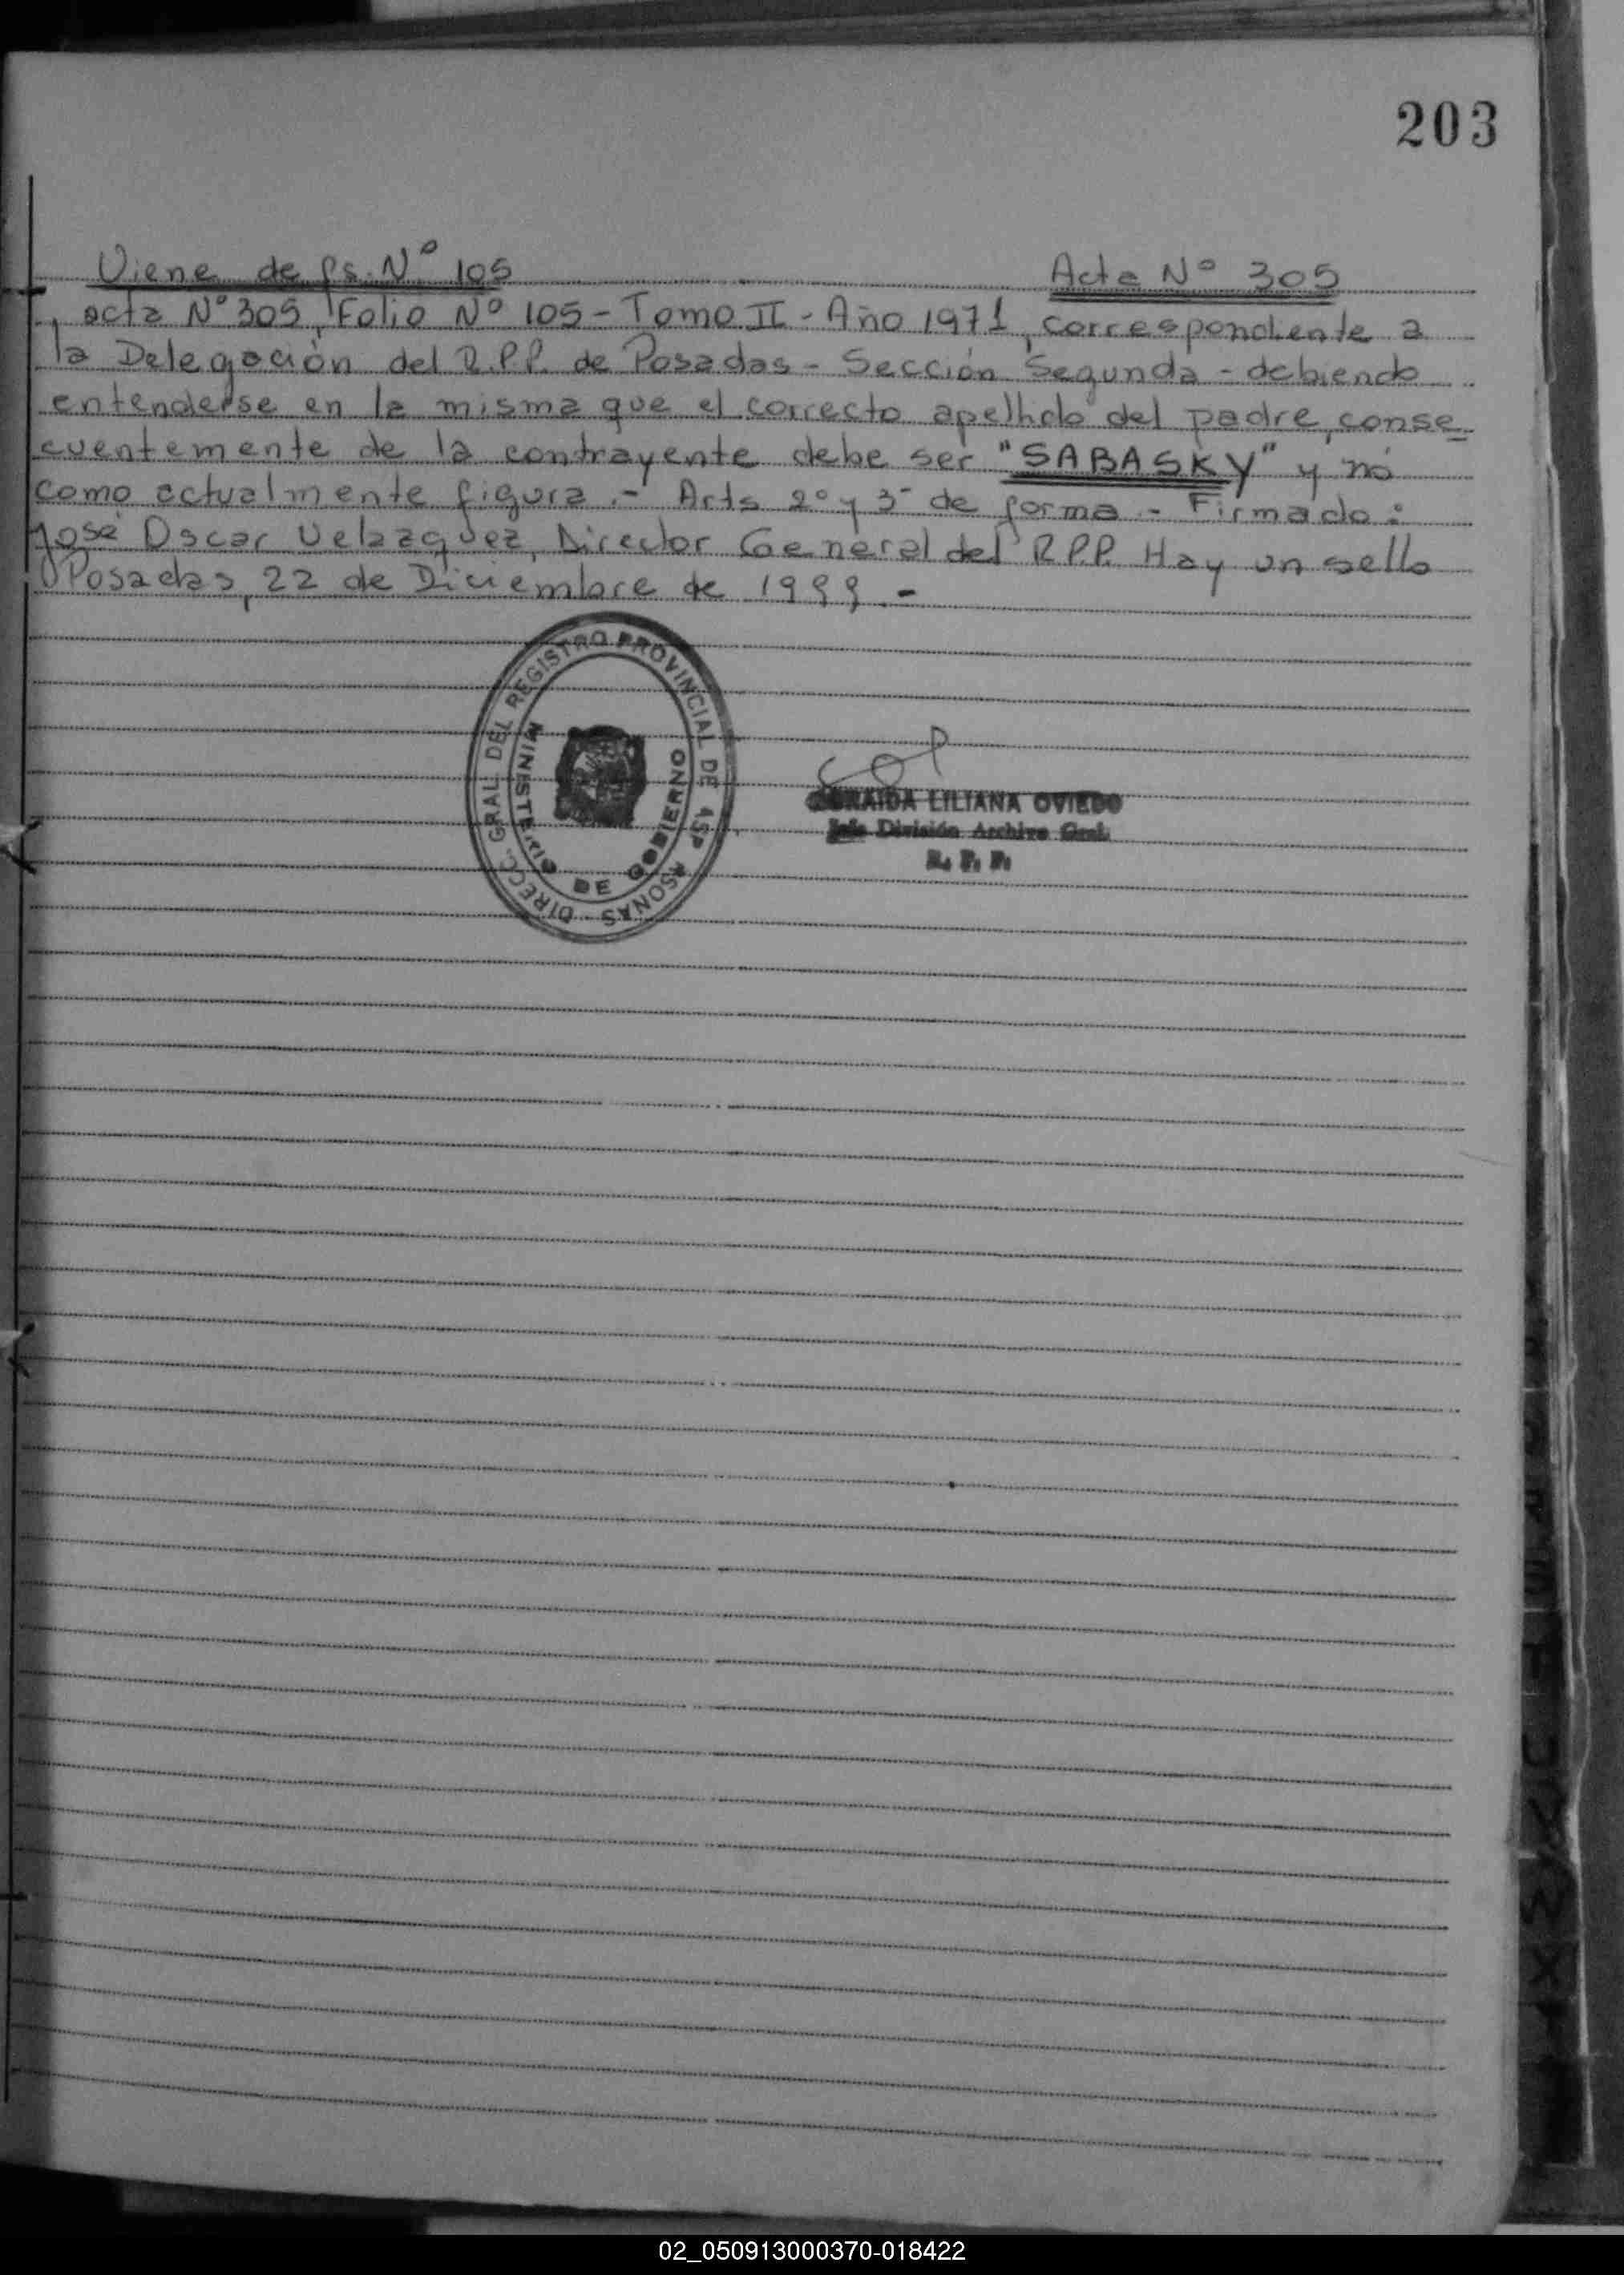 203
Viene de fs. Nº 105
Acta Nº 305
, acta Nº 305, Folio Nº 105 - Tomo II - Año 1971, correspondiente a
la Delegación del R.P.P. de Posadas - Sección Segunda - debiendo
entenderse en la misma que el correcto apellido del padre, conse_
cuentemente de la contrayente debe ser "SABASKY" y nó
como actualmente figura .- Arts 2º y 3º de forma - Firmado :
José Oscar Velazquez, Director General del R.P.P. Hay un sello
Posadas, 22 de Diciembre de 1999 .-
DIRECC. GRAL. DEL REGISTRO PROVINCIAL DE ASP
MINISTERIO DE GOBIERNO
LILIANA OVIEDO
Jefe División Archivo Gral.
R. P. P.
02_050913000370-018422